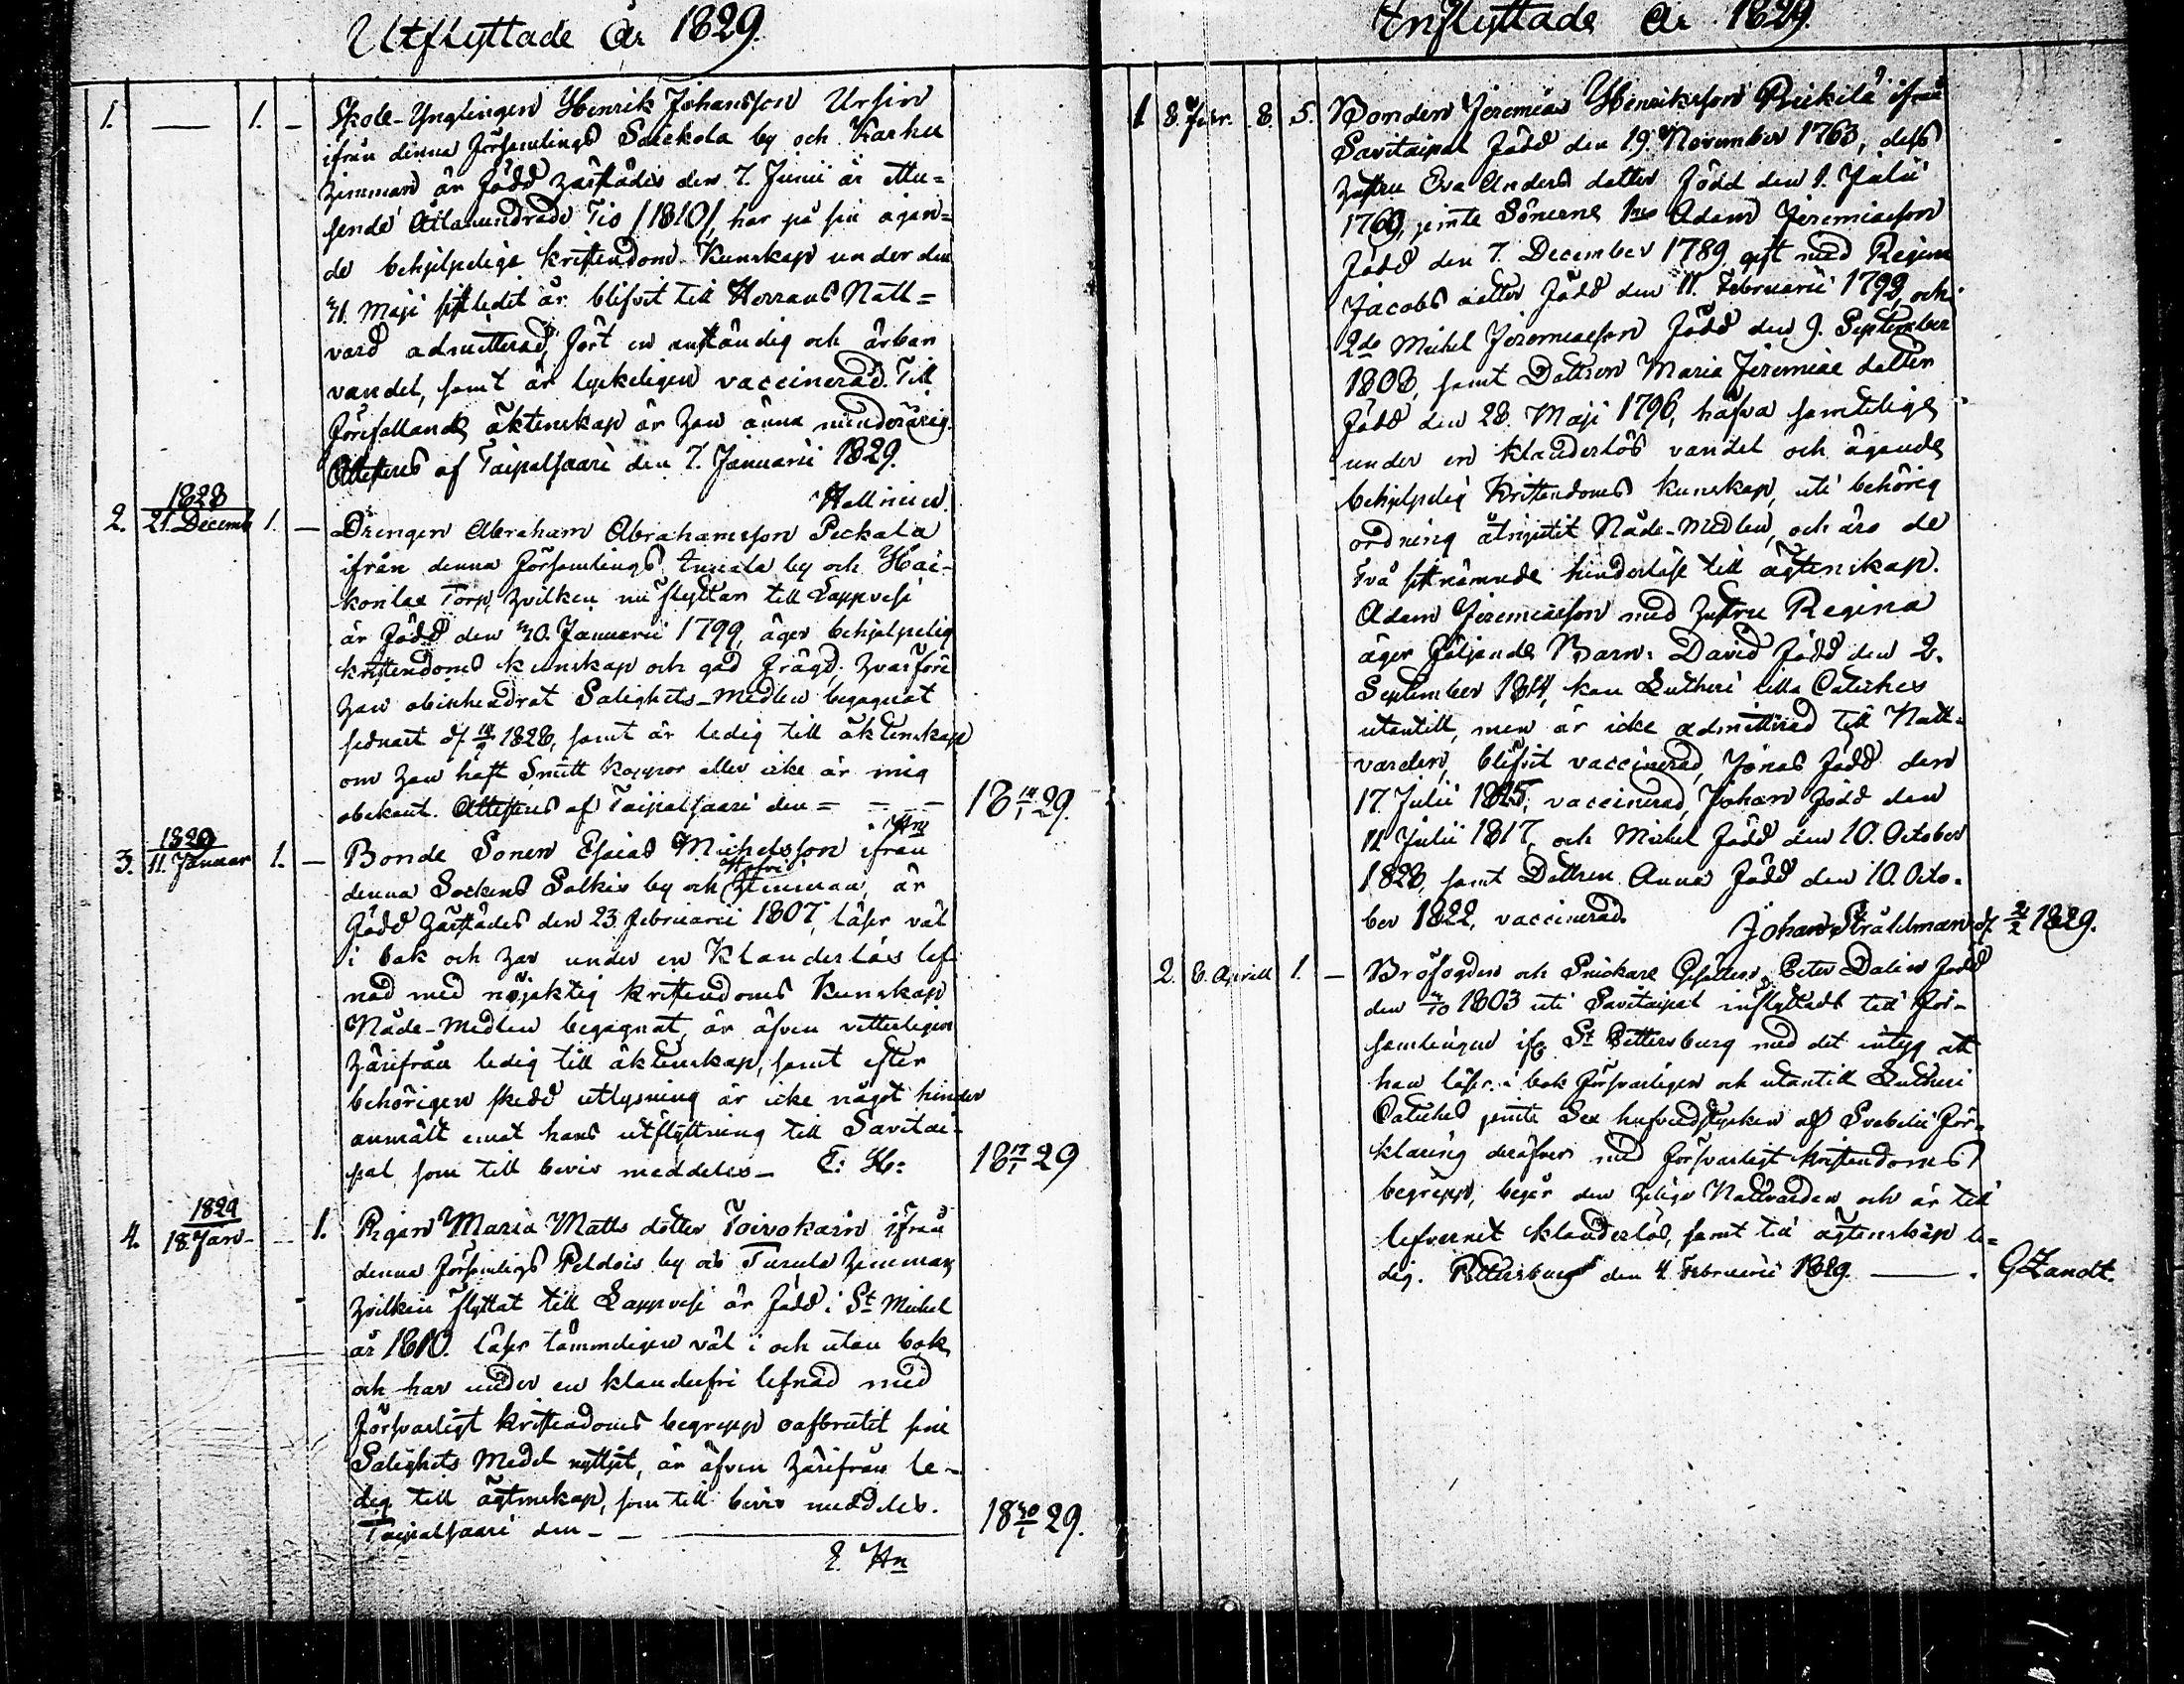 Utflyttade År 1829.
1. — 1. — Skole-Ynglingen Henrik Johansson Ursin
ifrån denna Församlings Saickola by och Karhu
hemman är född härstädes den 7. Junii år ettu=
sende Åttahundrade Tio /1810/, har på sin ägan=
de behjelpelige kristendoms Kunskap under den
31. Maji sistledet år blifvit till Herrans Natt=
vard admitterad, fört en anständig och ärbar
vandel, samt är lyckeligen vaccinerad. Till
förefallande äktenskap är han ännu minderårig.
Attesteras af Taipalsaari den 7. Januarii 1829.
Hallenius.
2. 1828 21. Decemb 1. — Drengen Abraham Abrahamsson Peckala
ifrån denna Församlings by och Hai-
konlax Torp, hvilken nu flyttar till Lappvesi
är född den 30. Januarii 1799, äger behjelpelig
kristendoms kunskap och god frägd, hvarföre
han obehindrat Salighets-Medlen begagnat
sednast d. 1828, samt är ledig till äktenskap
om han haft Smitt Koppor eller icke är mig
obekant. Attesteras af Taipalsaari den = — — 18 29.
Hn
3. 1829 11. Januar 1. — Bonde Sonen Esaias Michelsson ifrån
denna Sockens Solkis by och hemman, är
född härstädes den 23. Februarii 1807, läser väl
i bok och har under en Klanderlös lef
nad med nöjaktig kristendoms Kunskap
Nåde-Medlen begagnat, är äfven vetterligen
härifrån ledig till äktenskap, samt efter
behörigen skedd utlysning är icke något hinder
anmält emot hans utflyttning till Savitai-
pal, som till bevis meddeles — E. H: 18 17/1 29
4. 1829 18. Jan — 1. Pigan Maria Matts dotter Toivokain ifrån
denna Församligs Peldois by och Turula hemman,
hvilken flyttat till Lappvesi är född i St Michel
år 1810. läser tämmeligen väl i och utan bok,
och har under en klanderfri lefnad med
försvarligt kristendoms begrepp oafbrutit sine
Salighets Medel nyttjat, är äfven härifrån le-
dig till ägtenskap, som till bevis meddeles.
Taipalsaari den — — 18 30/1 29.
E. Hn
Inflyttade År 1829.
1. 8. Febr. 3. 5. Bonden Jeremias Henriksson ifrån
Savitaipal född den 19. November 1763, dess
hustru Eva Anders dotter född den 1. Julii
1769, jemte Sönerne 1mo Adam Jeremiasson
född den 7. December 1789, gift med Regina
Jacobs dotter född den 11. Februarii 1792, och
2do Michel Jeremiasson född den 9. September
1808, samt Dottren Maria Jeremiæ dotter
född den 28. Maji 1796, hafva samtelige
under en klanderlös vandel och ägande
behjelpelig Kristendoms kunskap, uti behörig
ordning åtnjutit Nåde-Medlen, och äro de
två sistnämnde hinderlöse till ägtenskap.
Adam Jeremiasson med hustru Regina
äger följande Barn: David född den 2.
September 1814, kan Lutheri lilla Catiches
utantill, men är icke admitterad till Natt-
varden, blifvit vaccinerad, Jonas född den
17. Julii 1815, vaccinerad, Johan född den
11. Julii 1817, och Michel född den 10. October
1828, samt Dottren Anna född den 10. Octo-
ber 1822, vaccinerad. Johan Stråhlman d. 1829.
2. 6. Aprill 1. — Brofogden och Snickare Gesällen Peter Dalin född
den 1803 uti Savitaipal inflyttadt till för-
samlingen ifr. St Pettersburg med det intyg att
han läser i bok försvarligen och utantill Lutheri
Catiches jemte Sex hufvudstycken af Svebelii för-
klaring deröfver med försvarligt kristendoms
begrepp, begår den helige Nattvarden och är till
lefvernet klanderlös, samt till ägtenskap le-
dig. Pettersburg den 4. Februarii 1829. — G Zandt.